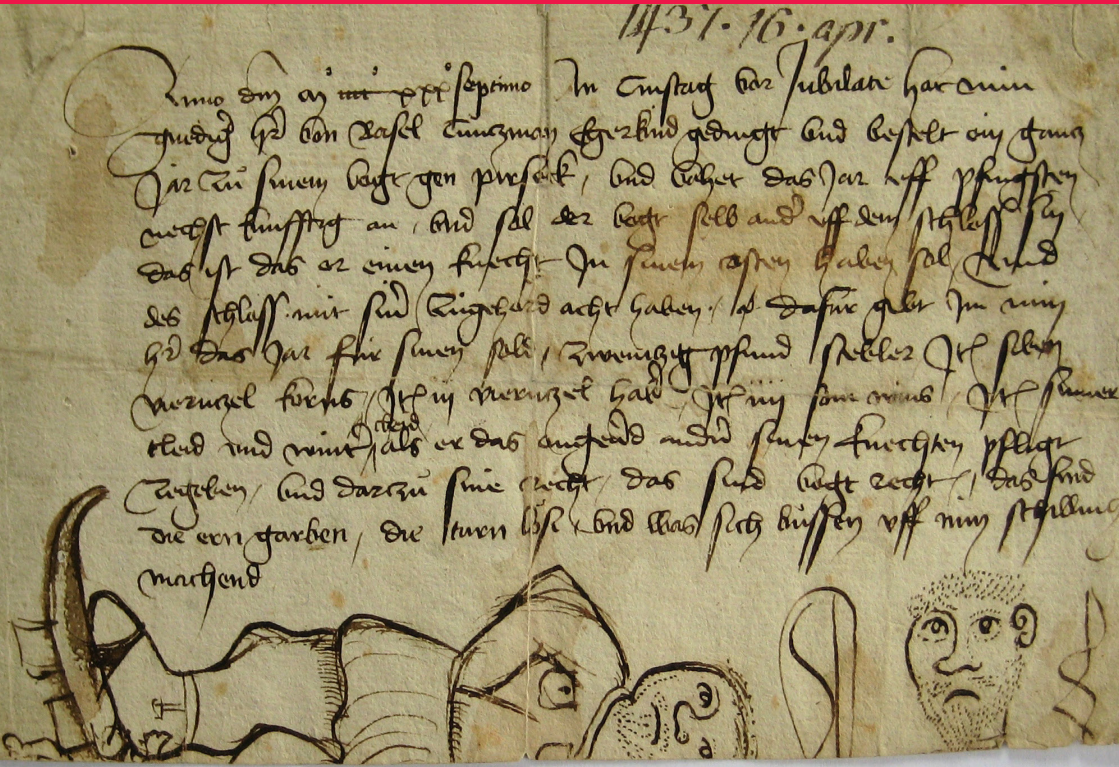 1437. 16. apr.
Anno dm̄ m° cccc° xxx° septimo In Cinstag vor Jubilate hat min
gnedig̃ hr̄ von Basel Cuntzman Egerkind gedingt vnd bestelt ein gantz
Jar zů sinem vogt gen pirseck, vnd vahet das Jar vff pfingsten
nechst kunfftig an, vnd sol der vogt selb and̄ vff dem schloss sin
das ist das er einen knecht In sinem costen haben sol, vnd
des schloss mit sin̄ zůgehord acht haben, dafür gibt Im min
hr̄ das Jar für sinen sold, zwentzig pfund stebler Itē siben
viernzel korns, Itē iij viernzel hab̄, Itē iiij som wins, Itē sumer
cleid vnd wint̄ cleid als er das angend andn̄ sinen knechten pfligt
zegeben, vnd darzů sine recht, das sind vogt recht, das sind
die ern garben, die turn lösi, vnd was sich bůssen vff nün schilling
machend